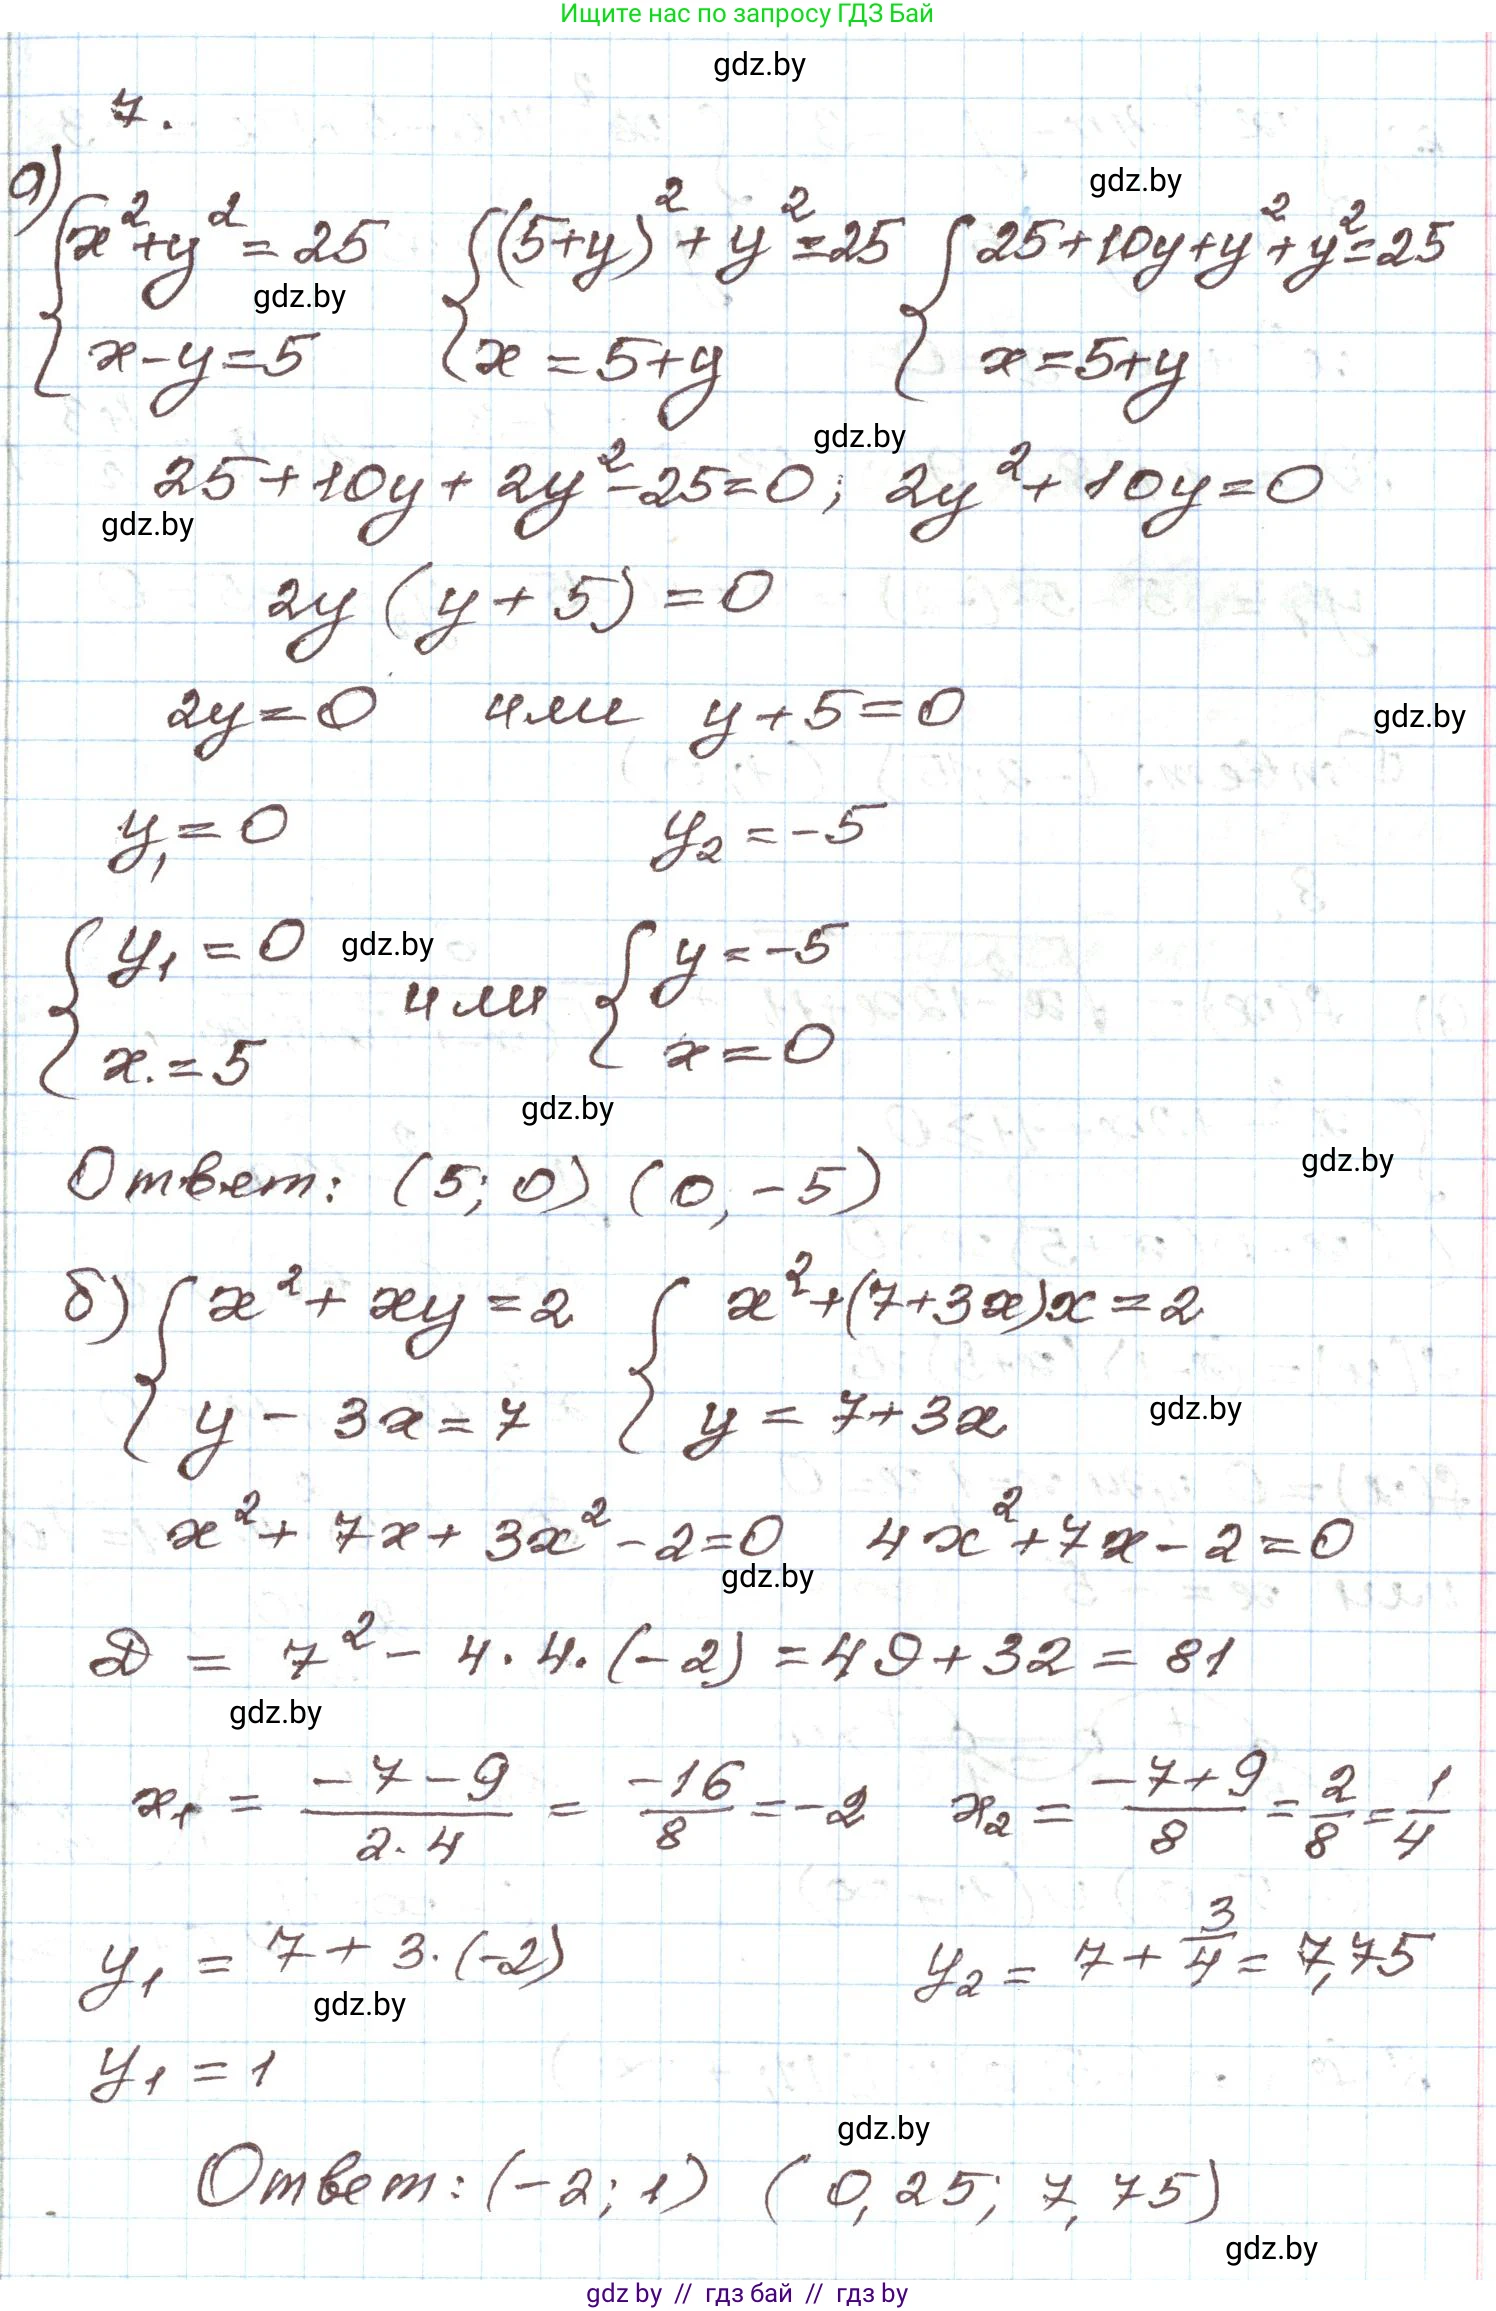 Ищите нас по запросу ГДЗ Бай
gdz.by
7.
gdz.by
а) { x² + y² = 25 { (5+y)² + y² = 25 { 25 + 10y + y² + y² = 25
gdz.by
x - y = 5 x = 5 + y x = 5 + y
gdz.by
25 + 10y + 2y² - 25 = 0; 2y² + 10y = 0
gdz.by
2y (y + 5) = 0
2y = 0 или y + 5 = 0
gdz.by
y₁ = 0 y₂ = -5
{ y₁ = 0 gdz.by { y = -5
или
x. = 5 x = 0
gdz.by
Ответ: (5; 0) (0, -5)
gdz.by
б) { x² + xy = 2 { x² + (7+3x)x = 2
y - 3x = 7 y = 7 + 3x
gdz.by
x² + 7x + 3x² - 2 = 0 4x² + 7x - 2 = 0
gdz.by
D = 7² - 4 · 4 · (-2) = 49 + 32 = 81
gdz.by
x₁ = (-7-9)/(2·4) = -16/8 = -2 x₂ = (-7+9)/8 = 2/8 = 1/4
y₁ = 7 + 3·(-2) y₂ = 7 + 3/4 = 7,75
gdz.by
y₁ = 1
gdz.by
Ответ: (-2; 1) (0,25; 7,75)
gdz.by
gdz by // гдз бай // гдз by